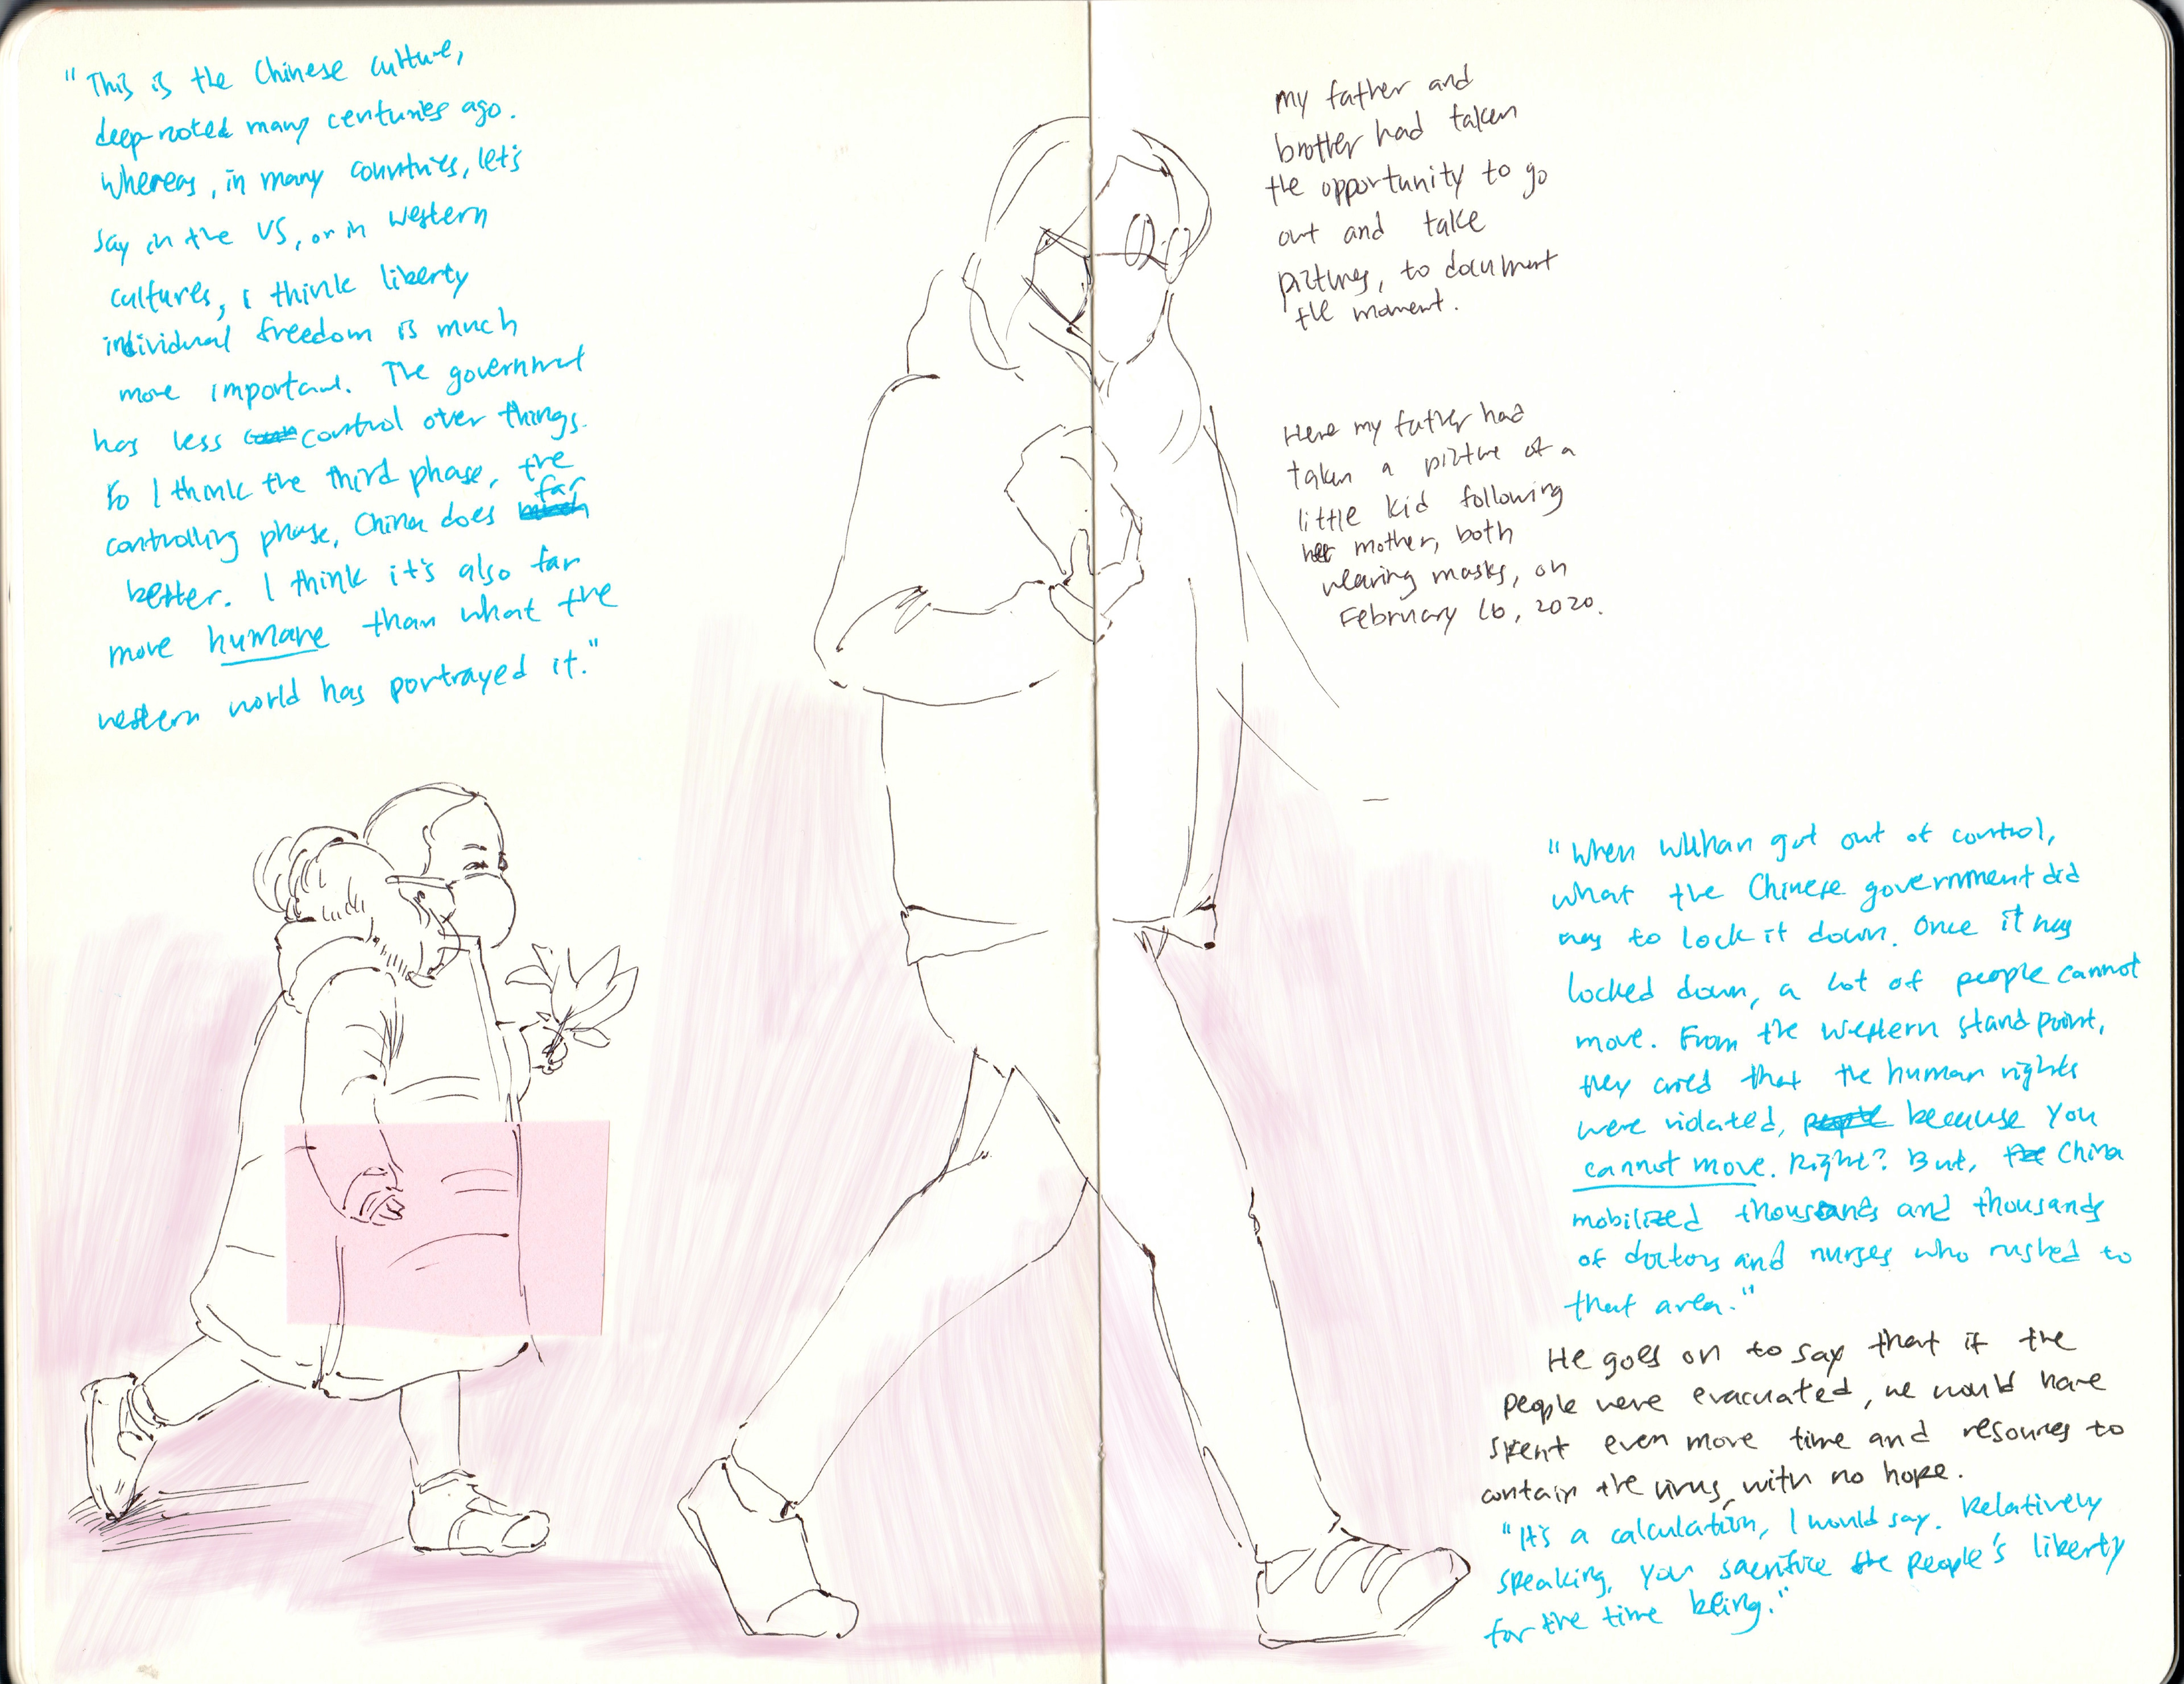 "This is the Chinese culture,
deep-rooted many centuries ago.
Whereas, in many countries, let's
say in the US, or in western
cultures, I think liberty
individual freedom is much
more important. The government
has less control over things.
So I think the third phase, the
controlling phase, China does far
better. I think it's also far
more humane than what the
western world has portrayed it."
my father and
brother had taken
the opportunity to go
out and take
pictures, to document
the moment.
Here my father had
taken a picture of a
little kid following
her mother, both
wearing masks, on
February 16, 2020.
"When Wuhan got out of control,
what the Chinese government did
was to lock it down. Once it was
locked down, a lot of people cannot
move. From the western standpoint,
they cried that the human rights
were violated, because you
cannot move. Right? But, China
mobilized thousands and thousands
of doctors and nurses who rushed to
that area."
He goes on to say that if the
people were evacuated, we would have
spent even more time and resources to
contain the virus, with no hope.
"It's a calculation, I would say. Relatively
speaking, you sacrifice the people's liberty
for the time being."